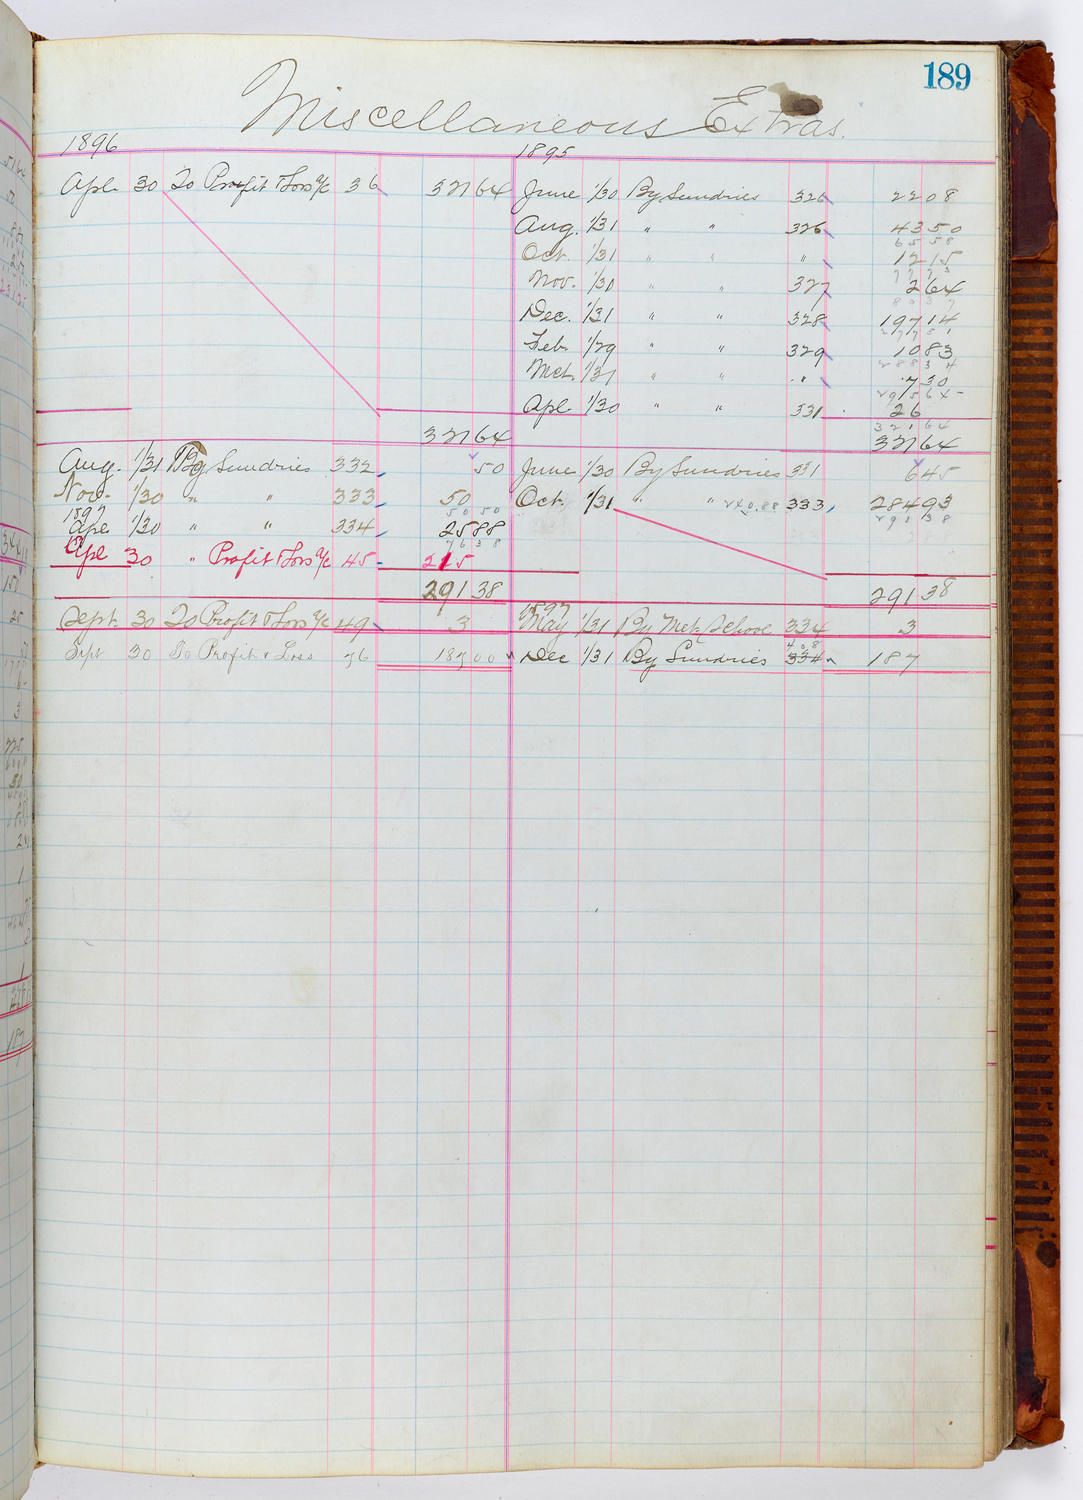 189
Miscellaneous Extras.
1896
Apl. 30 To Profit & Loss a/c 36 321 64
321 64
Aug. 1/31 By Sundries 332 50
Nov. 1/30 " " 333 50
50 50
1897
Ape. 1/30 " " 334 25 88
76 38
Apl 30 " Profit & Loss a/c 45 215
291 38
Sept. 30 To Profit & Loss a/c 49 3
Sept 30 To Profit & Loss 76 187 00
1895
June 1/30 By Sundries 326 22 08
Aug. 1/31 " " 326 43 50
65 58
Oct. 1/31 " " " 12 15
77 73
Nov. 1/30 " " 327 2 64
80 37
Dec. 1/31 " " 328 197 14
277 51
Feb. 1/29 " " 329 10 83
288 34
Mch. 1/31 " " " 7 30
295 64
Apl. 1/30 " " 331 26
321 64
321 64
June 1/30 By Sundries 331 6 45
Oct. 1/31 " " 240.88 333 284 93
291 38
291 38
1897
May 1/31 By Met. School 334 3
408
Dec 1/31 By Sundries 334 187